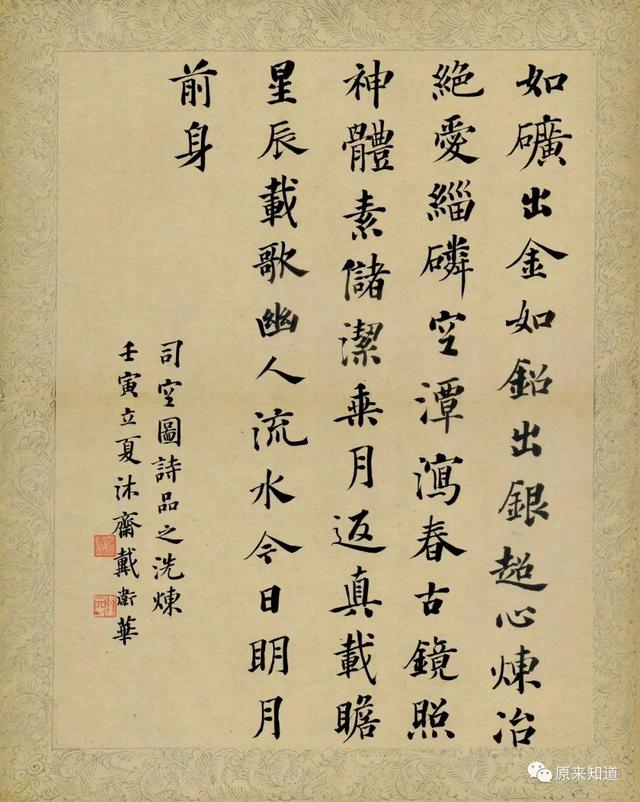 如礦出金如鉛出銀超心煉冶
絶愛緇磷空潭瀉春古鏡照
神體素儲潔乘月返真載瞻
星辰載歌幽人流水今日明月
前身
司空圖詩品之洗煉
壬寅立夏沐齋戴衛華
原来知道